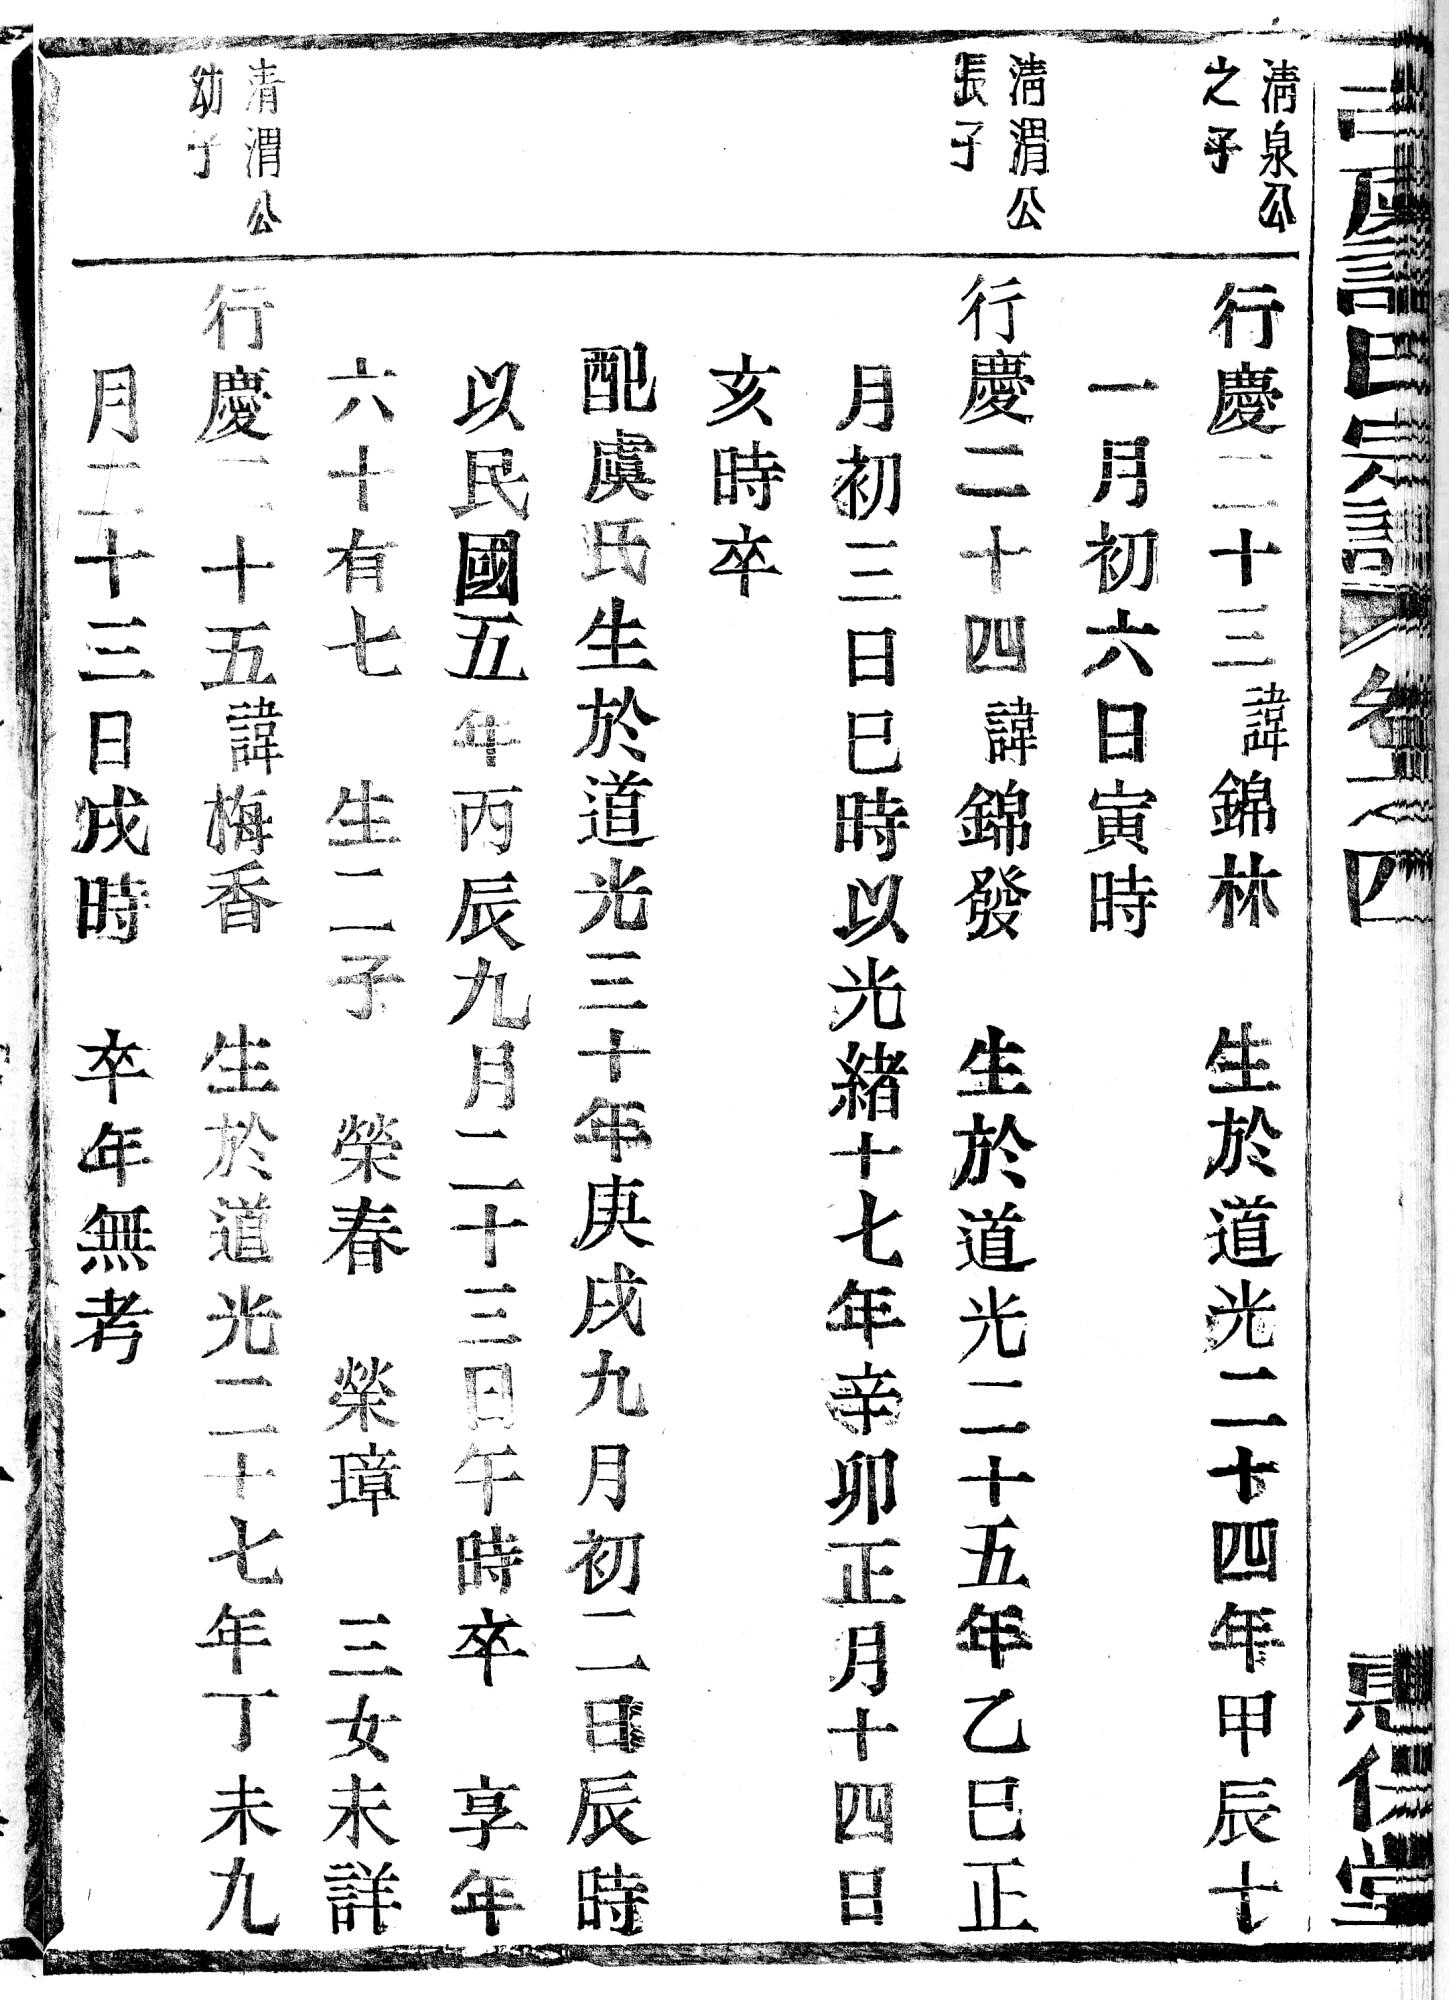 宗譜 卷之四
惠仁堂
清泉公
之子
行慶二十三諱錦林 生於道光二十四年甲辰十
一月初六日寅時
清渭公
長子
行慶二十四諱錦發 生於道光二十五年乙巳正
月初三日巳時以光緒十七年辛卯正月十四日
亥時卒
配虞氏生於道光三十年庚戌九月初二日辰時
以民國五年丙辰九月二十三日午時卒 享年
六十有七 生二子 榮春 榮璋 三女未詳
清渭公
幼子
行慶二十五諱梅香 生於道光二十七年丁未九
月二十三日戌時 卒年無考